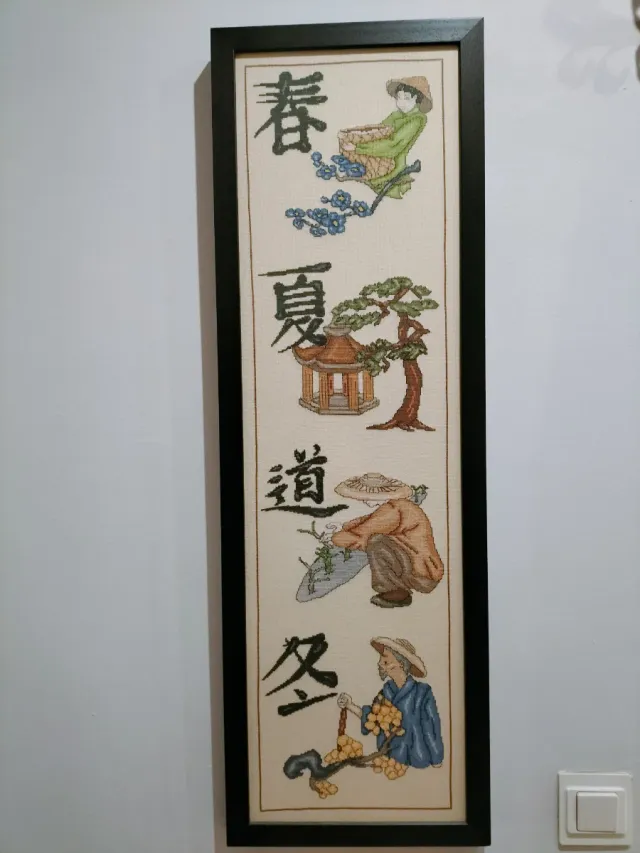 春
夏
道
冬